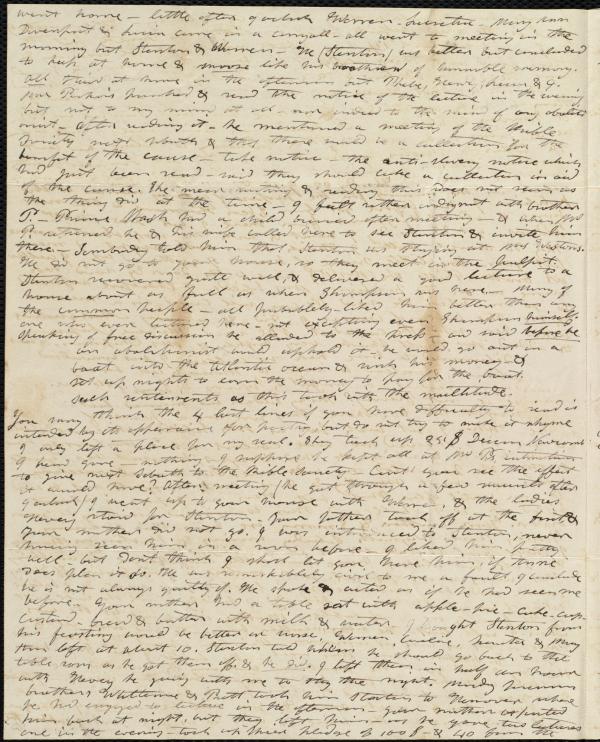 went home - little after 9 oclock Warren
Davenport & came in a carryall - all went to meeting in the
morning but Stanton & Warren - He (Stanton) was better but concluded
to keep at home & snooze like his of memory.
All at home in the afternoon
read the notice of the lecture in the evening
but not to my mind at all - nor indeed to the mind of any abolitionist - After reading it - he mentioned a meeting of the Bible
Society next & that there would be a collection for the
benefit of the cause - take notice - the anti-slavery notice which
had just been read - said they should take a collection in aid
of the cause. The mean & reading this does not seem as
the thing did at the time - I felt rather indignant with brother
P - had a child buried after meeting - & when Mr
P. returned he & his wife called here to see Stanton & invite him
there - Somebody told him that Stanton was staying at Mrs Weston's.
He did not go to your house, so they meet in the pulpit.
Stanton recovered quite well, & delivered a good lecture to a
house about as full as when Thompson was here - Many of
the common people - all probably liked him better than any
one who ever lectured here - not excepting even Thompson himself.
Speaking of free discussion he alluded to the press and said before he
an abolitionist would uphold it - he would go out in a
boat into the Atlantic ocean & sink his money &
set up nights to earn the money to pay for the boat.
Such sentiments as this took with the multitude.
You may think the 4 last lines if you have difficulty to read is
intended by its appearance for poetry but do not try to make it rhyme
I only left a place for my seal. They took up 25 $ Deacon
I hear gave - nothing. I suppose he kept all at Mr P's intention
to give next sabbath to the Bible Society - Can't you see the effect
it would have? After meeting (he got through a few minutes after
9 oclock) I went up to your house with & the ladies
stand for Stanton - Your father took off at the first &
your mother did not go. I was introduced to Stanton, never
having seen him in a room before. I liked him pretty
well - but don't think I shall let you have him, if
does plan it so. He was remarkably civil to me a fault, I conclude
he is not always guilty of. He spoke & acted as if he had seen me
before. Your mother had a table set with apple-pie - cake - cup-
custard - bread & butter with milk & water. I thought Stanton from
his feasting would be better or worse. Warren, Caroline, & Mary
Ann left at about 10. Stanton told he should go back to the
table soon as he got them off & he did. I left them in half an hour
with Nancy he going with me to stay the night. Monday forenoon
brothers Whittemore & Pratt took him Stanton to Hanover where
he had engaged to lecture in the afternoon - your mother expected
him back at night, but they left him - as he gave two lectures
one in the evening - took up there pledge of 100 $ & 40 from the